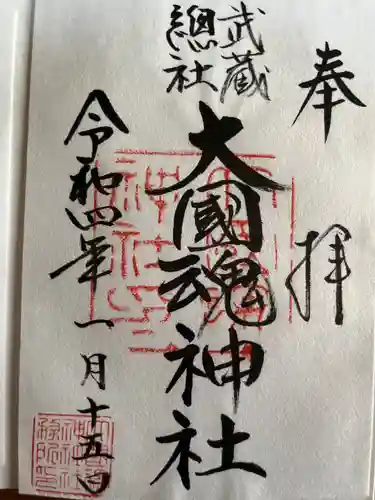 奉拝
武蔵
總社
大國魂神社
令和四年一月十五日